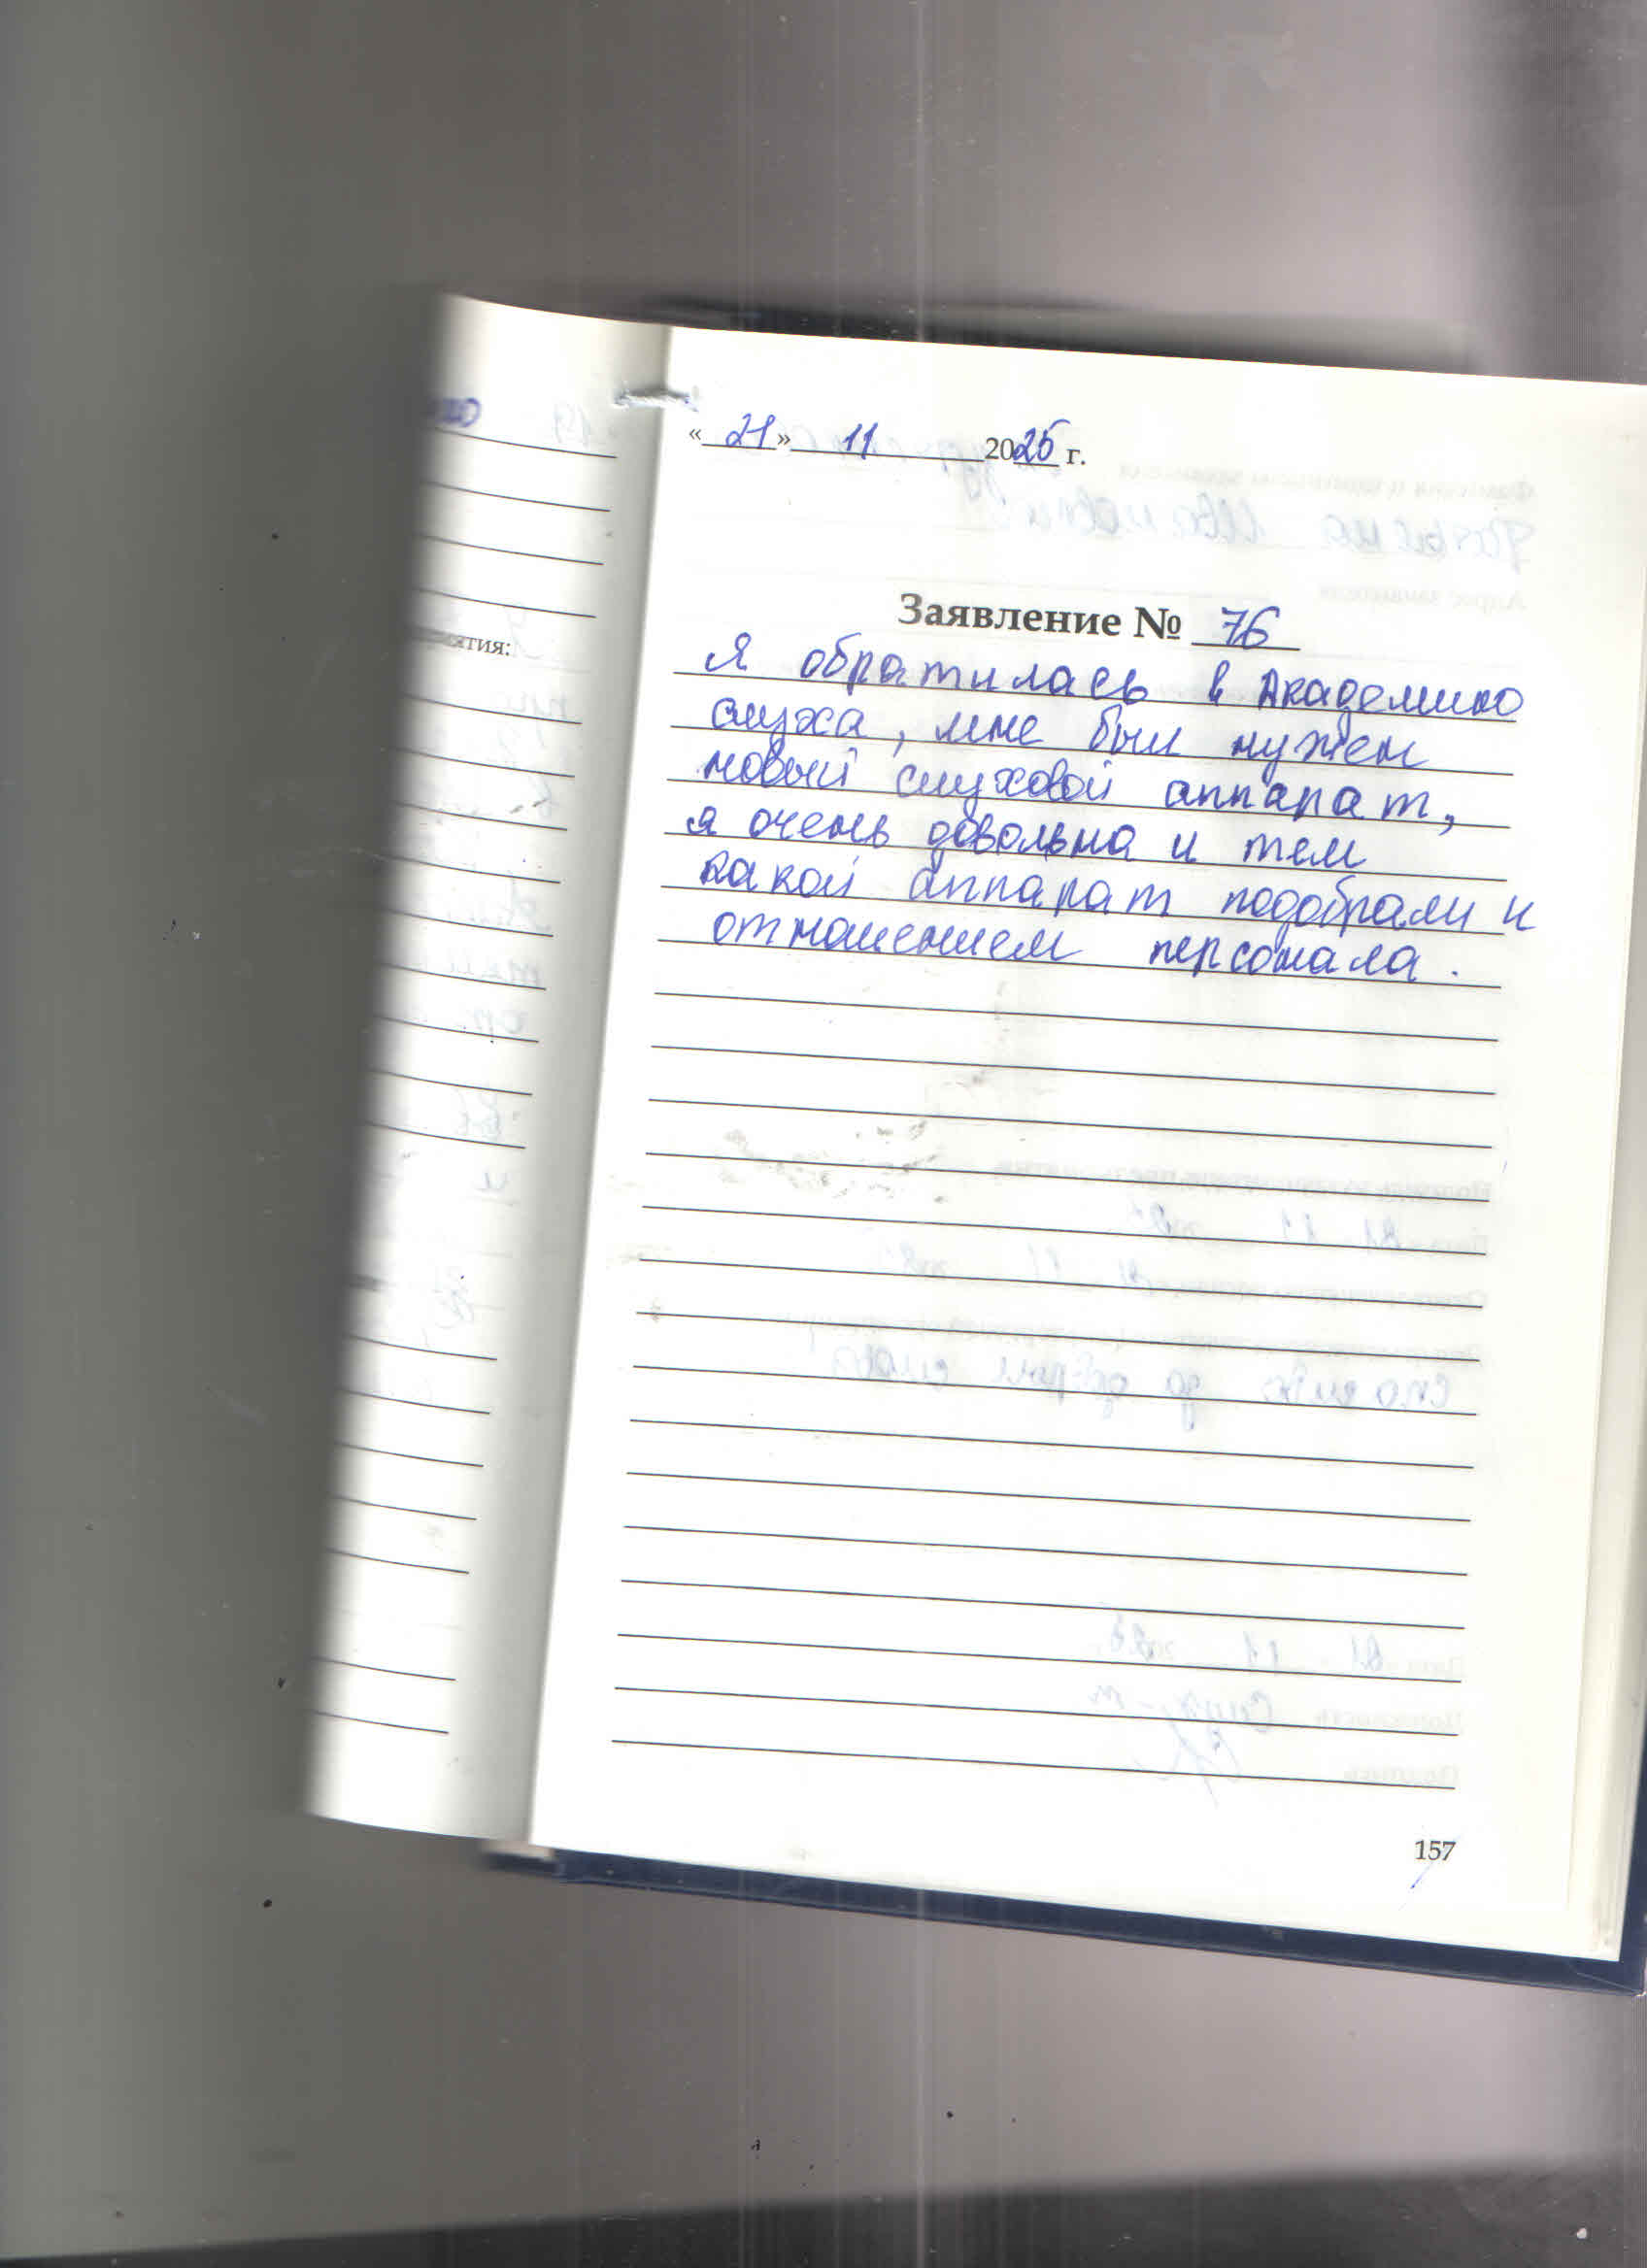 «21» 11 2025 г.
Заявление № 76
Я обратилась в Академию
слуха, мне был нужен
новый слуховой аппарат,
я очень довольна и тем
какой аппарат подобрали и
отношением персонала.
ятия:
157